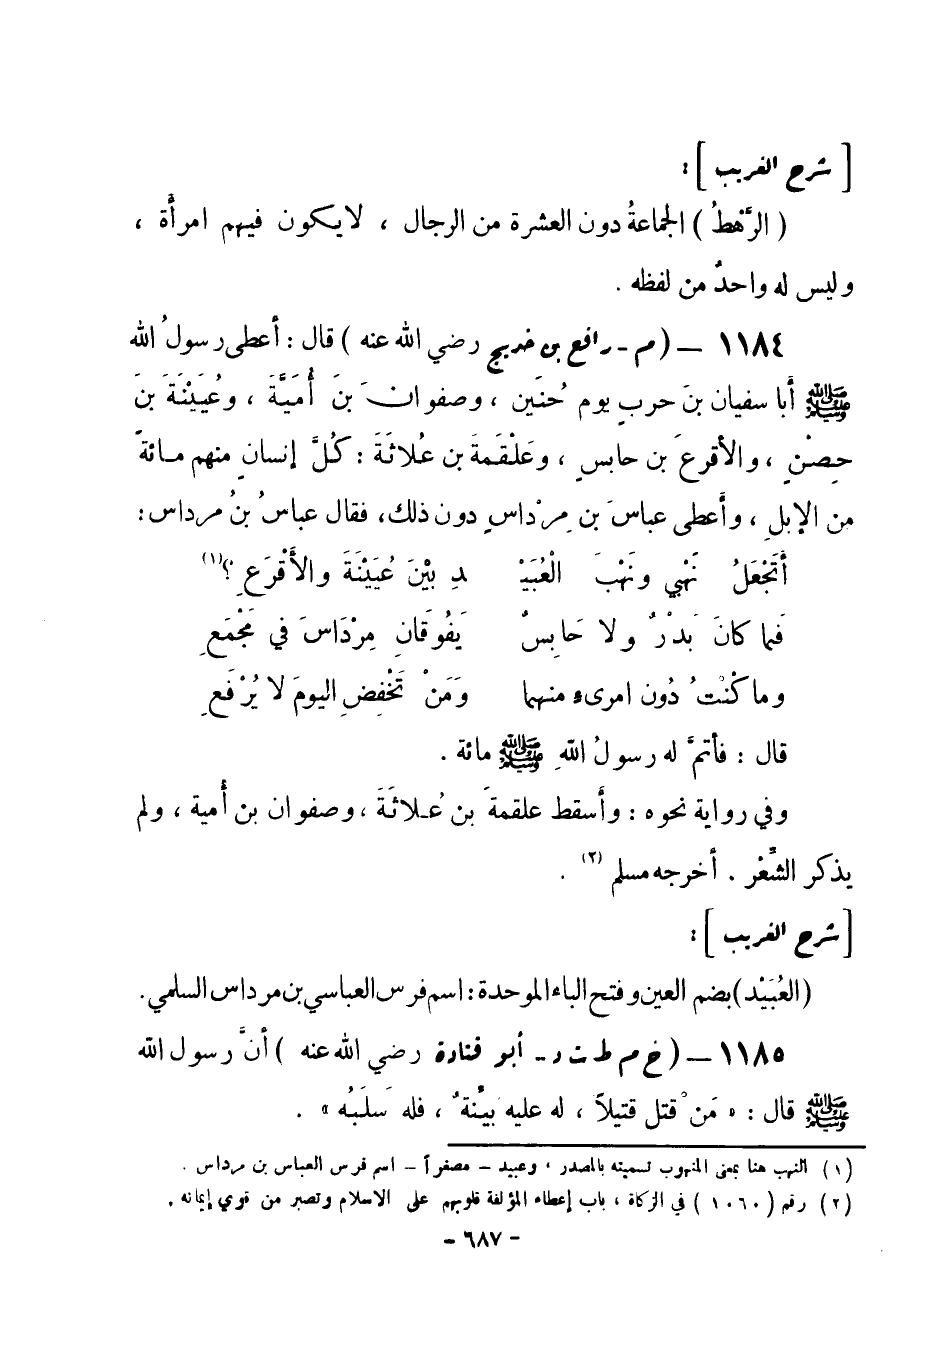 [ شرح الغريب ] :
( الرَّهْطُ ) الجماعةُ دون العشرة من الرجال ، لا يكون فيهم امرأة ،
وليس له واحدٌ من لفظه .
١١٨٤ – ( م - رافع بن خديج رضي الله عنه ) قال : أعطى رسولُ الله
ﷺ أبا سفيان بنَ حربٍ يوم حُنَين ، وصفوانَ بنَ أُمَيَّةَ ، وعُيَيْنَةَ بنَ
حِصْنٍ ، والأقرعَ بن حابسٍ ، وعَلْقَمةَ بن عُلاثَةَ : كُلَّ إنسانٍ منهم مائةً
من الإبلِ ، وأعطى عباسَ بن مِرْداسٍ دون ذلك، فقال عباسُ بنُ مرداس :
أَتَجْعَلُ نَهْبِي ونَهْبَ الْعُبَيْدِ بيْنَ عُيَيْنَةَ والأَقْرَعِ ؟(١)
فما كانَ بَدْرٌ ولا حَابِسٌ يَفُوقَانِ مِرْدَاسَ في مَجْمَعِ
وما كُنْتُ دُون امرىءٍ منهما وَمَنْ تَخْفِضِ اليومَ لا يُرْفَعِ
قال : فأتمَّ له رسولُ اللهِ ﷺ مائة .
وفي رواية نحوه : وأسقط علقمةَ بن عُلاثَةَ ، وصفوان بن أمية ، ولم
يذكر الشِّعْر . أخرجه مسلم (٢) .
[ شرح الغريب ] :
( العُبَيْد ) بضم العين وفتح الباء الموحدة : اسم فرس العباسي بن مرداس السلمي .
١١٨٥ – ( خ م ط ت د - أبو قتادة رضي الله عنه ) أنَّ رسول الله
ﷺ قال : « مَنْ قتل قتيلاً ، له عليه بيِّنةٌ ، فله سَلَبُه » .
(١) النهب هنا بمعنى المنهوب تسميته بالمصدر ، وعبيد – مصغراً – اسم فرس العباس بن مرداس .
(٢) رقم (١٠٦٠) في الزكاة ، باب إعطاء المؤلفة قلوبهم على الاسلام وتصبر من قوي إيمانه .
- ٦٨٧ -